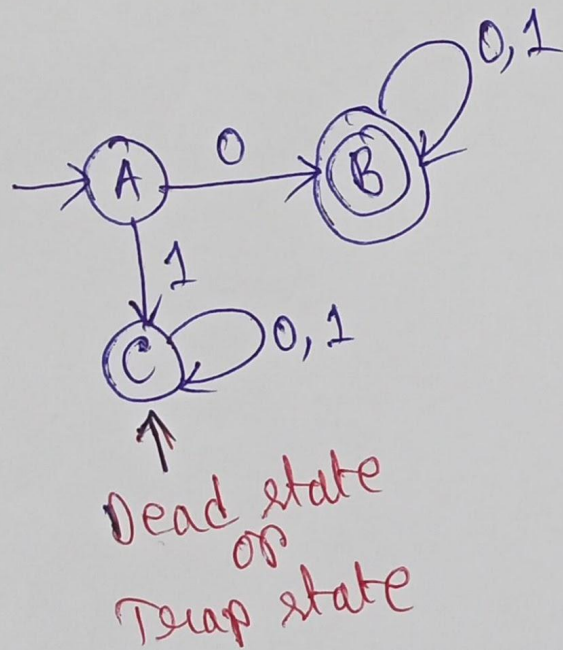 0,1
0
A
B
1
C
0,1
Dead state
or
Trap state